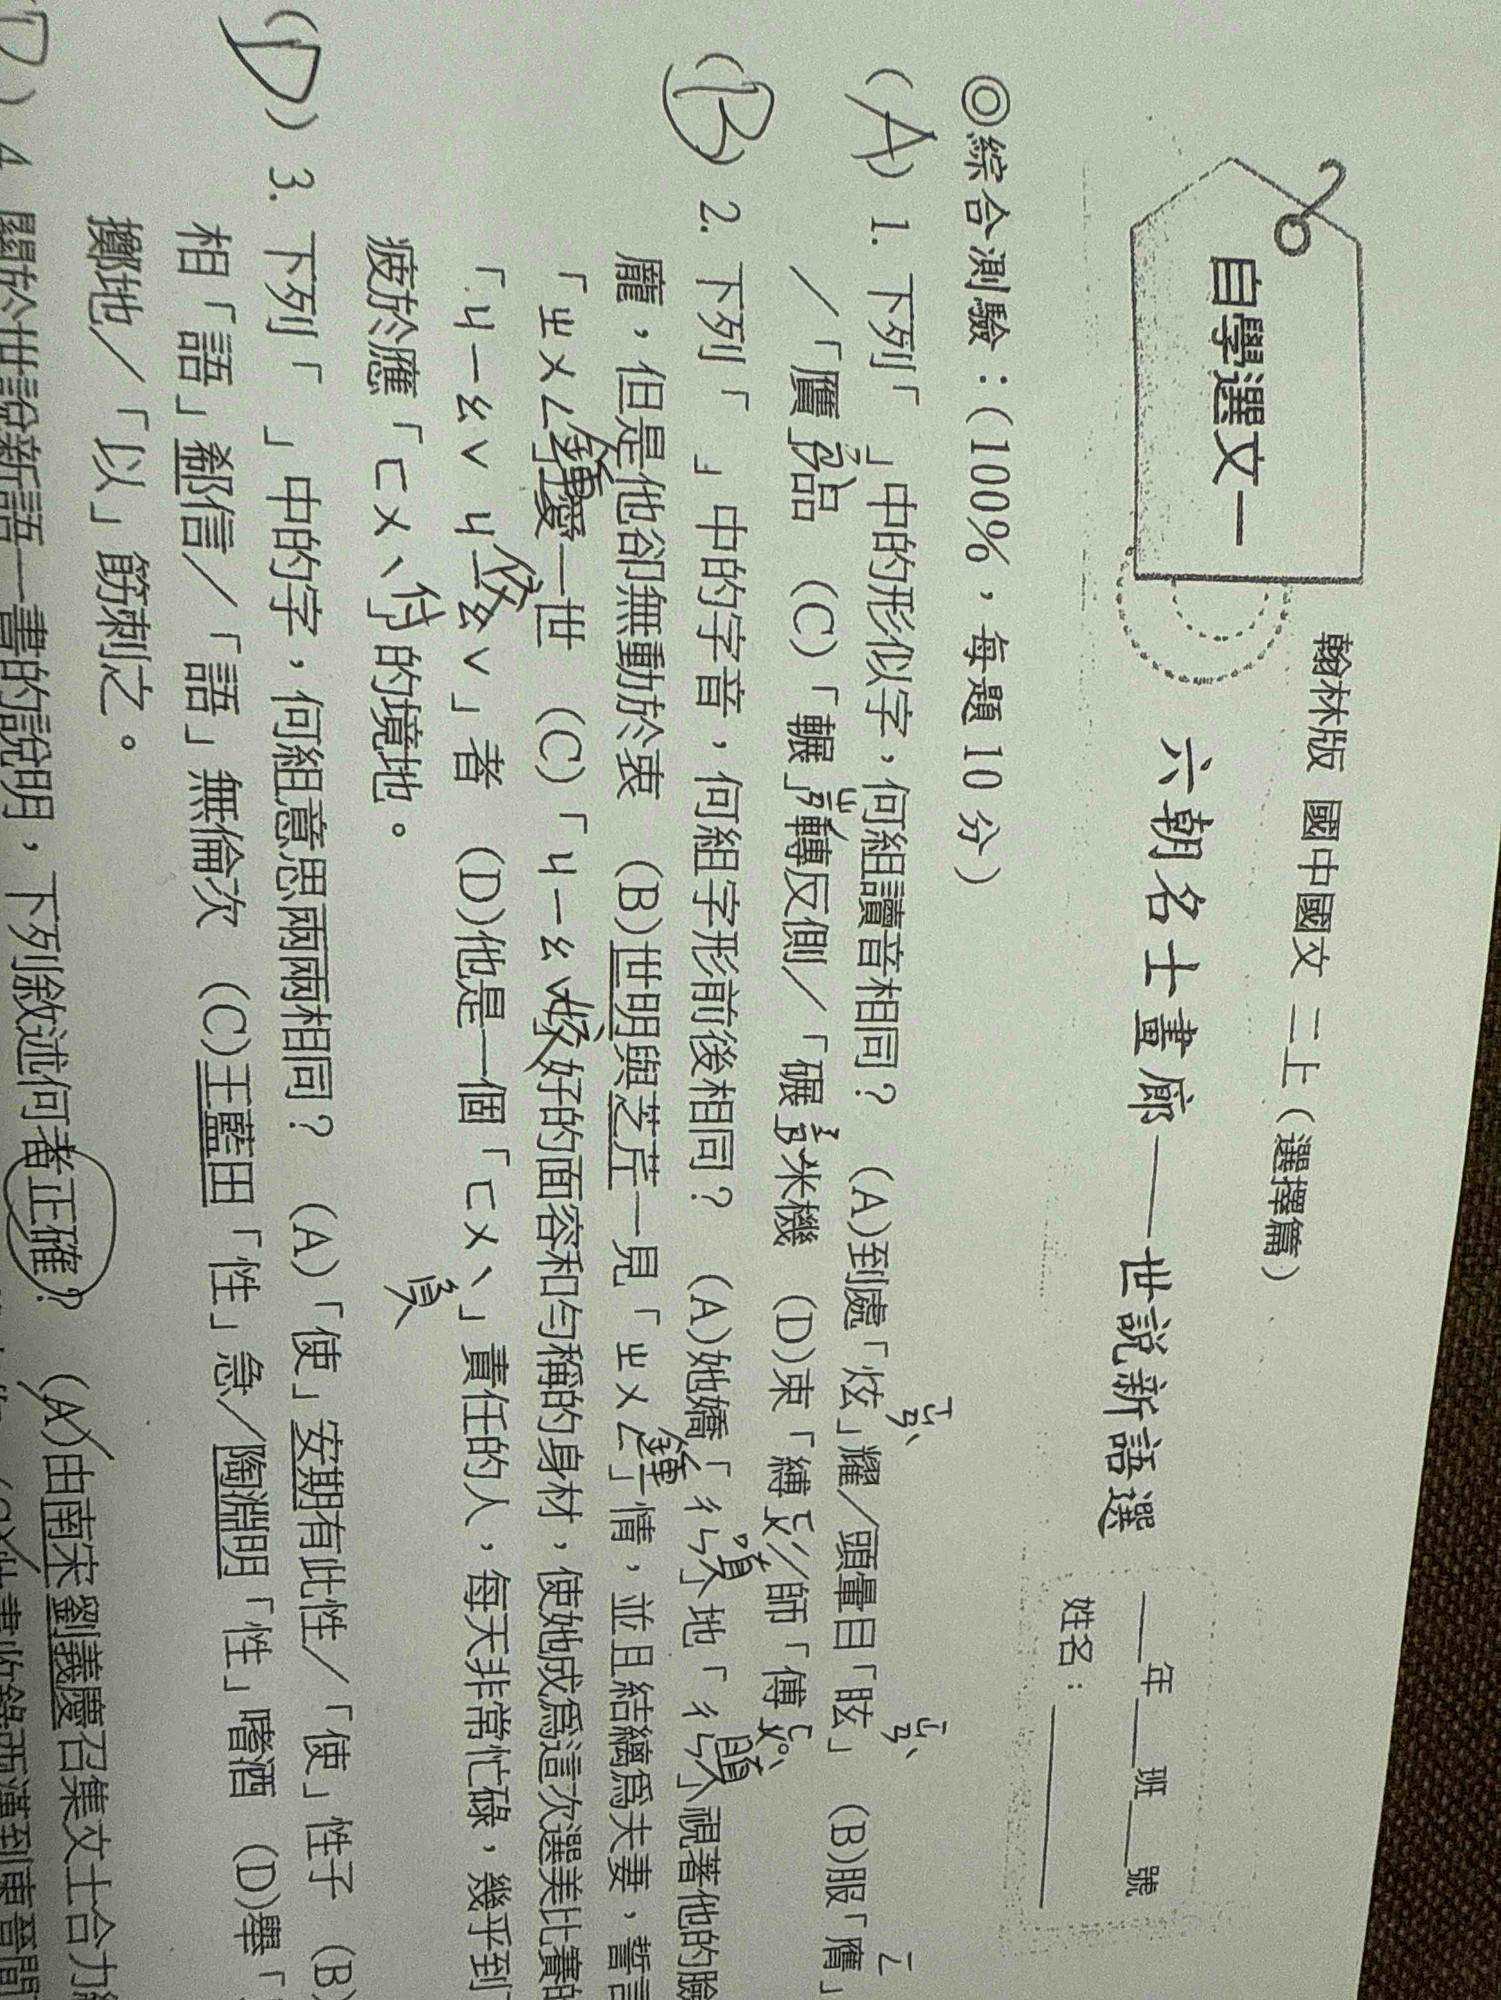 翰林版 國中國文 二上（選擇篇）
自學選文一
六朝名士畫廊——世說新語選
＿年＿班＿號
姓名：
◎綜合測驗：（100%，每題10分）
（A）1. 下列「 」中的形似字，何組讀音相同？ (A)到處「炫」ㄒㄩㄢˋ耀／頭暈目「眩」ㄒㄩㄢˋ (B)服「膺」ㄧ
／「贗」品 (C)「輾」ㄓㄢˇ轉反側／「碾」ㄋㄧㄢˇ米機 (D)束「縛」ㄈㄨˊ／師「傅」ㄈㄨˋ
（B）2. 下列「 」中的字音，何組字形前後相同？ (A)她嬌「ㄔㄣ」嗔地「ㄔㄣ」瞋視著他的臉
龐，但是他卻無動於衷 (B)世明與芝芹一見「ㄓㄨㄥ」鍾情，並且結縭為夫妻，誓言
「ㄓㄨㄥ」鍾愛一世 (C)「ㄐㄧㄠˇ」姣好的面容和勻稱的身材，使她成為這次選美比賽的
「ㄐㄧㄠˇ ㄐㄧㄠˇ」佼者 (D)他是一個「ㄈㄨˋ」負責任的人，每天非常忙碌，幾乎到
疲於應「ㄈㄨˋ」付的境地。
（D）3. 下列「 」中的字，何組意思兩兩相同？ (A)「使」安期有此性／「使」性子 (B)
相「語」郗信／「語」無倫次 (C)王藍田「性」急／陶淵明「性」嗜酒 (D)舉「
擲地／「以」筯刺之。
（D）4. 關於世說新語一書的說明，下列敘述何者正確？ (A)由南宋劉義慶召集文士合力